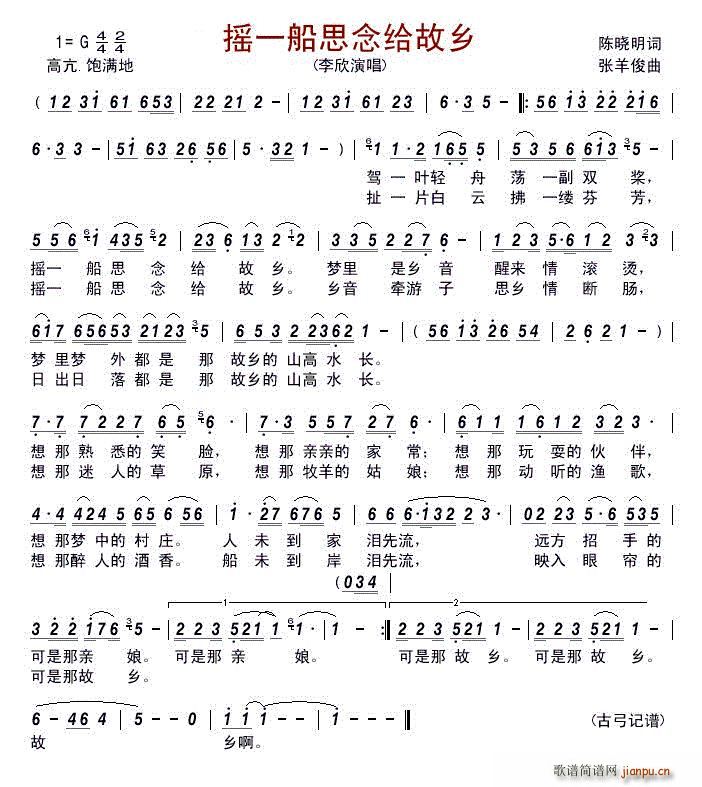 摇一船思念给故乡
1= G 4/4 2/4
陈晓明词
高亢.饱满地
(李欣演唱)
张羊俊曲
( 12 3i 61 653 | 22 21 2 - | 12 3i 61 23 | 6·3 5 - |: 56 i3 22 216 |
6·3 3 - | 5i 63 26 56 | 5·32 1 - ) | 1 1·2 165 5 | 5 35 6 6i3 5 - |
驾一叶轻 舟 荡 一副 双 桨,
扯一片白 云 拂 一缕 芬 芳,
5 56 i 435 2 | 23 6 13 2 | 3 35 2 27 6 - | 1 23 5·6 12 3 3 |
摇一 船 思 念 给 故 乡。 梦里 是乡 音 醒来 情 滚 烫,
摇一 船 思 念 给 故 乡。 乡音 牵游 子 思乡 情 断 肠,
617 65653 2123 5 | 6 3 2 2362 1 - | (56 i3 26 54 | 2 62 1 - ) |
梦 里梦 外都 是 那 故乡的 山高 水 长。
日 出日 落都 是 那 故乡的 山高 水 长。
7·7 7 227 65 6· | 7·3 5 52 27 6 | 6·1 1 1612 323 |
想 那 熟 悉的 笑 脸, 想 那 亲亲的 家 常; 想 那 玩 耍的 伙 伴,
想 那 迷 人的 草 原, 想 那 牧羊的 姑 娘; 想 那 动 听的 渔 歌,
4·4 424 5 65 6 | i·27 676 5 | 6 6·i32 2 3 | 02 23 5·6 535 |
想 那梦 中的 村 庄。 人 未 到 家 泪先流, 远方 招 手 的
想 那醉 人的 酒 香。 船 未 到 岸 泪先流, 映入 眼 帘 的
(034)
1
2
3 22 176 5 - | 2 23 521 1 | 1· 1 - :| 2 23 521 1 | 2 23 521 1 |
可是那亲 娘。 可是那 亲 娘。 可是那 故 乡。 可是那 故 乡。
可是那故 乡。
6 - 46 4 | 5 - 5 0 | i i i - | i - ‖
(古弓记谱)
故 乡啊。
歌谱简谱网
jianpu.cn